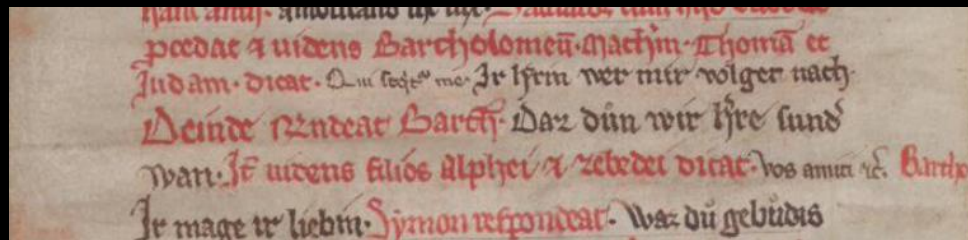 p̄cedat ⁊ uidens Bartholomeū · Mathm̄ · Thomā et
Iudam · dicat · Qui seqͥtᷣ me · Ir hr̄in wer mir volget nach ·
Deinde rn̄deat Barth̄ · Daz důn wir hr̄e sundˀ
wan · It̄ uidens filios Alphei ⁊ zebedei dicat · Vos amici ⁊c̄. Bartho
Ir mage ir liebin · Symon respondeat · Waz dů gebůdis